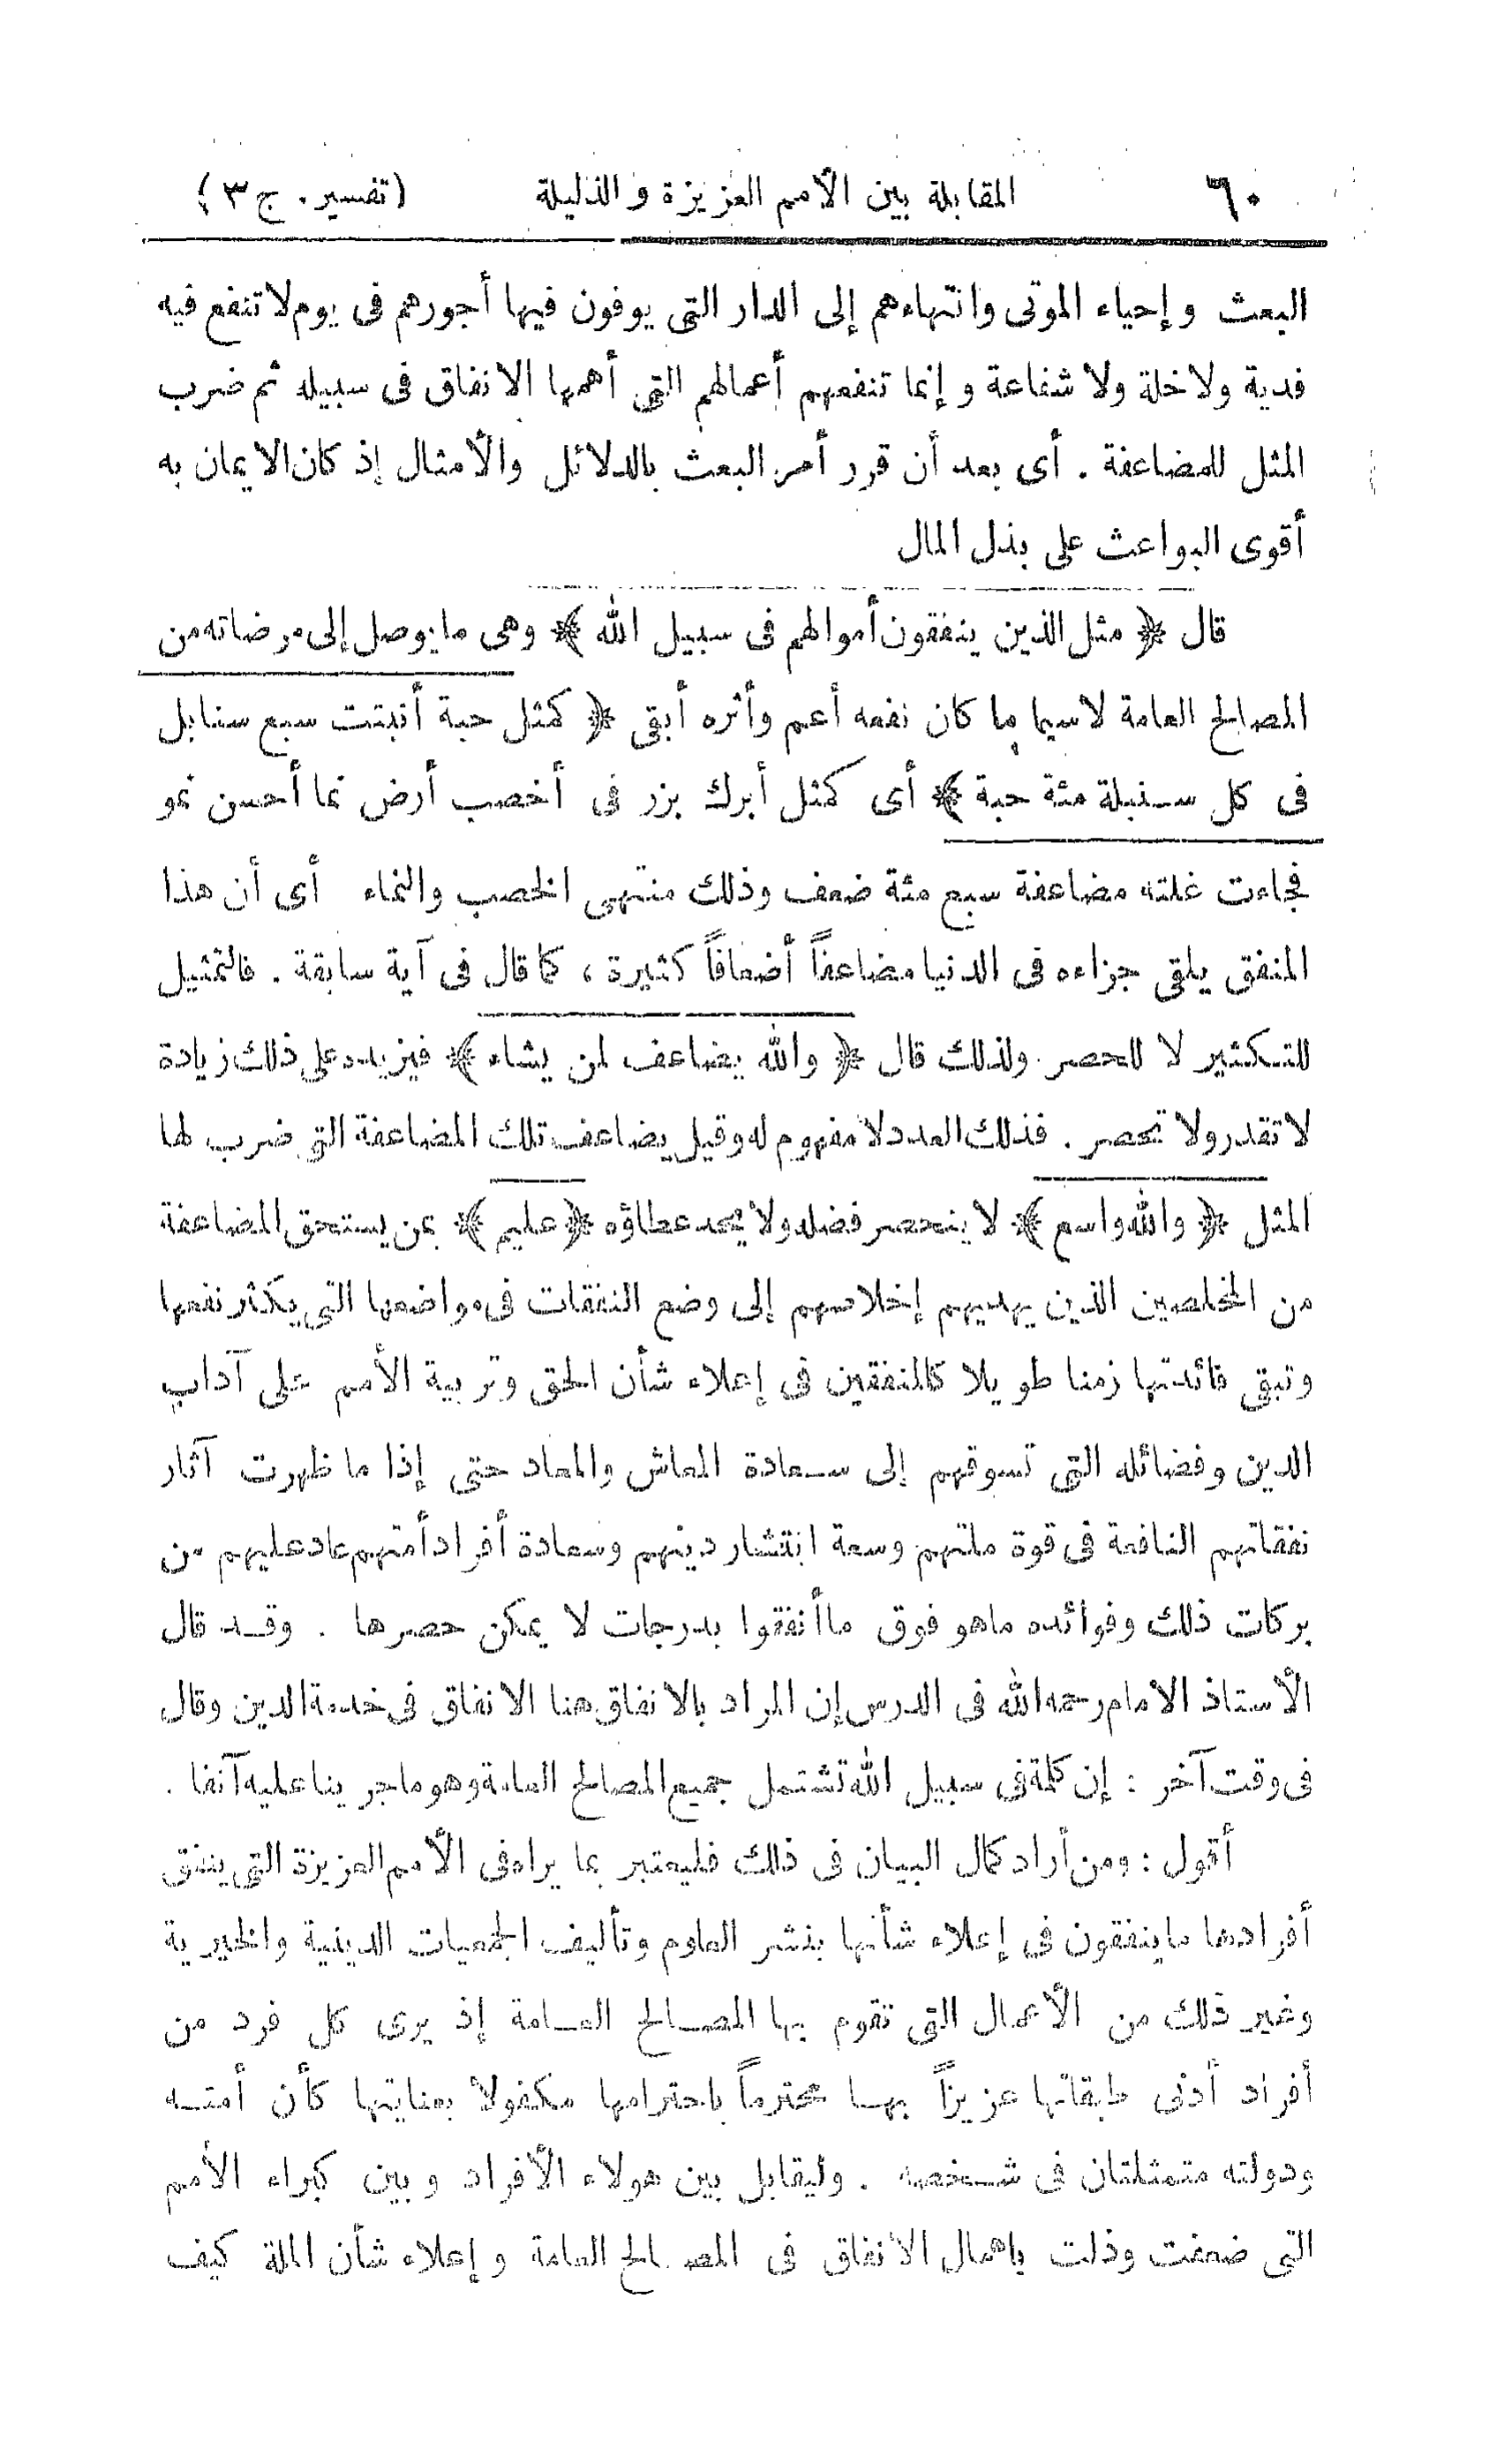 ٦٠ المقابلة بين الأمم العزيزة والذليلة (تفسير. ج ٣)
البعث وإحياء الموتى وانتهاءهم إلى الدار التى يوفون فيها أجورهم فى يوم لا تنفع فيه
فدية ولا خلة ولا شفاعة وإنما تنفعهم أعمالهم التى أهمها الانفاق فى سبيله ثم ضرب
المثل للمضاعفة . أى بعد أن قرر أمر البعث بالدلائل والأمثال إذ كان الايمان به
أقوى البواعث على بذل المال
قال ﴿ مثل الذين ينفقون أموالهم فى سبيل الله ﴾ وهى ما يوصل إلى مرضاته من
المصالح العامة لاسيما ما كان نفعه أعم وأثره أبقى ﴿ كمثل حبة أنبتت سبع سنابل
فى كل سنبلة مئة حبة ﴾ أى كمثل أبرك بزر فى أخصب أرض نما أحسن نمو
فجاءت غلته مضاعفة سبع مئة ضعف وذلك منتهى الخصب والنماء أى أن هذا
المنفق يلقى جزاءه فى الدنيا مضاعفاً أضعافاً كثيرة ، كما قال فى آية سابقة . فالتمثيل
للتكثير لا للحصر . ولذلك قال ﴿ والله يضاعف لمن يشاء ﴾ فيزيده على ذلك زيادة
لا تقدر ولا تحصر . فذلك العدد لا مفهوم له وقيل يضاعف تلك المضاعفة التى ضرب لها
المثل ﴿ والله واسع ﴾ لا ينحصر فضله ولا يحد عطاؤه ﴿ عليم ﴾ بمن يستحق المضاعفة
من المخلصين الذين يهديهم إخلاصهم إلى وضع النفقات فى مواضعها التى يكثر نفعها
وتبقى فائدتها زمنا طويلا كالمنفقين فى إعلاء شأن الحق وتربية الأمم على آداب
الدين وفضائله التى تسوقهم إلى سعادة المعاش والمعاد حتى إذا ما ظهرت آثار
نفقاتهم النافعة فى قوة ملتهم وسعة انتشار دينهم وسعادة أفراد أمتهم عاد عليهم من
بركات ذلك وفوائده ما هو فوق ما أنفقوا بدرجات لا يمكن حصرها . وقد قال
الأستاذ الامام رحمه الله فى الدرس إن المراد بالانفاق هنا الانفاق فى خدمة الدين وقال
فى وقت آخر : إن كلمة فى سبيل الله تشتمل جميع المصالح العامة وهو ما جرينا عليه آنفا .
أقول : ومن أراد كمال البيان فى ذلك فليعتبر بما يراه فى الأمم العزيزة التى ينفق
أفرادها ما ينفقون فى إعلاء شأنها بنشر العلوم وتأليف الجمعيات الدينية والخيرية
وغير ذلك من الأعمال التى تقوم بها المصالح العامة إذ يرى كل فرد من
أفراد أدنى طبقاتها عزيزاً بها محترماً باحترامها مكفولا بعنايتها كأن أمته
ودولته متمثلتان فى شخصه . وليقابل بين هولاء الأفراد وبين كبراء الأمم
التى ضعفت وذلت باهمال الانفاق فى المصالح العامة وإعلاء شأن الملة كيف